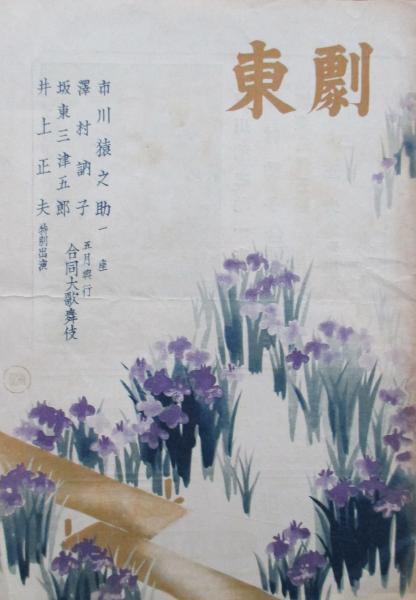 東劇
市川猿之助一座
澤村訥子
坂東三津五郎
井上正夫特別出演
五月興行
合同大歌舞伎